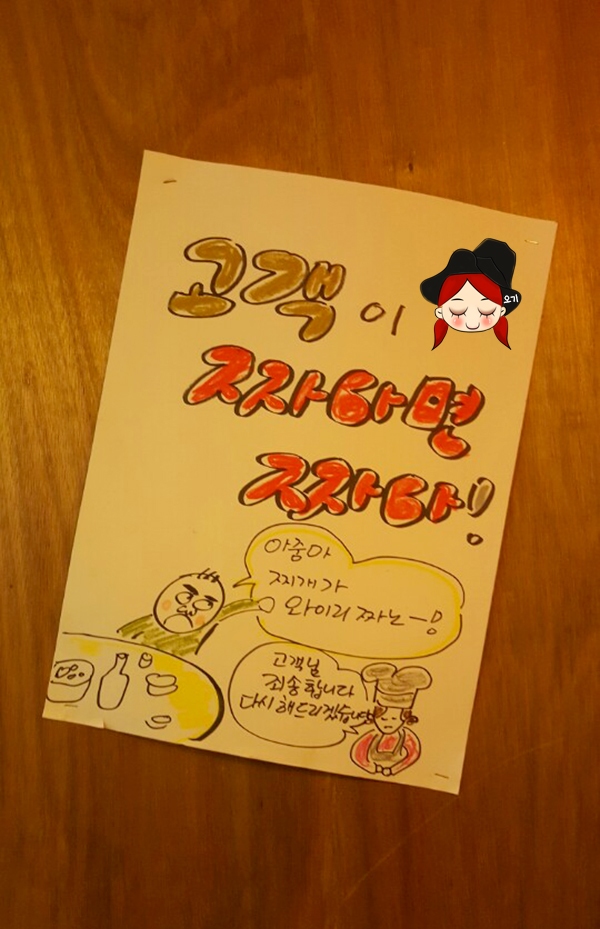 고객이
짜다면
짜다!
오기
아줌마
찌개가
와이리 짜노-!
고객님
죄송합니다
다시해드리겠습니다